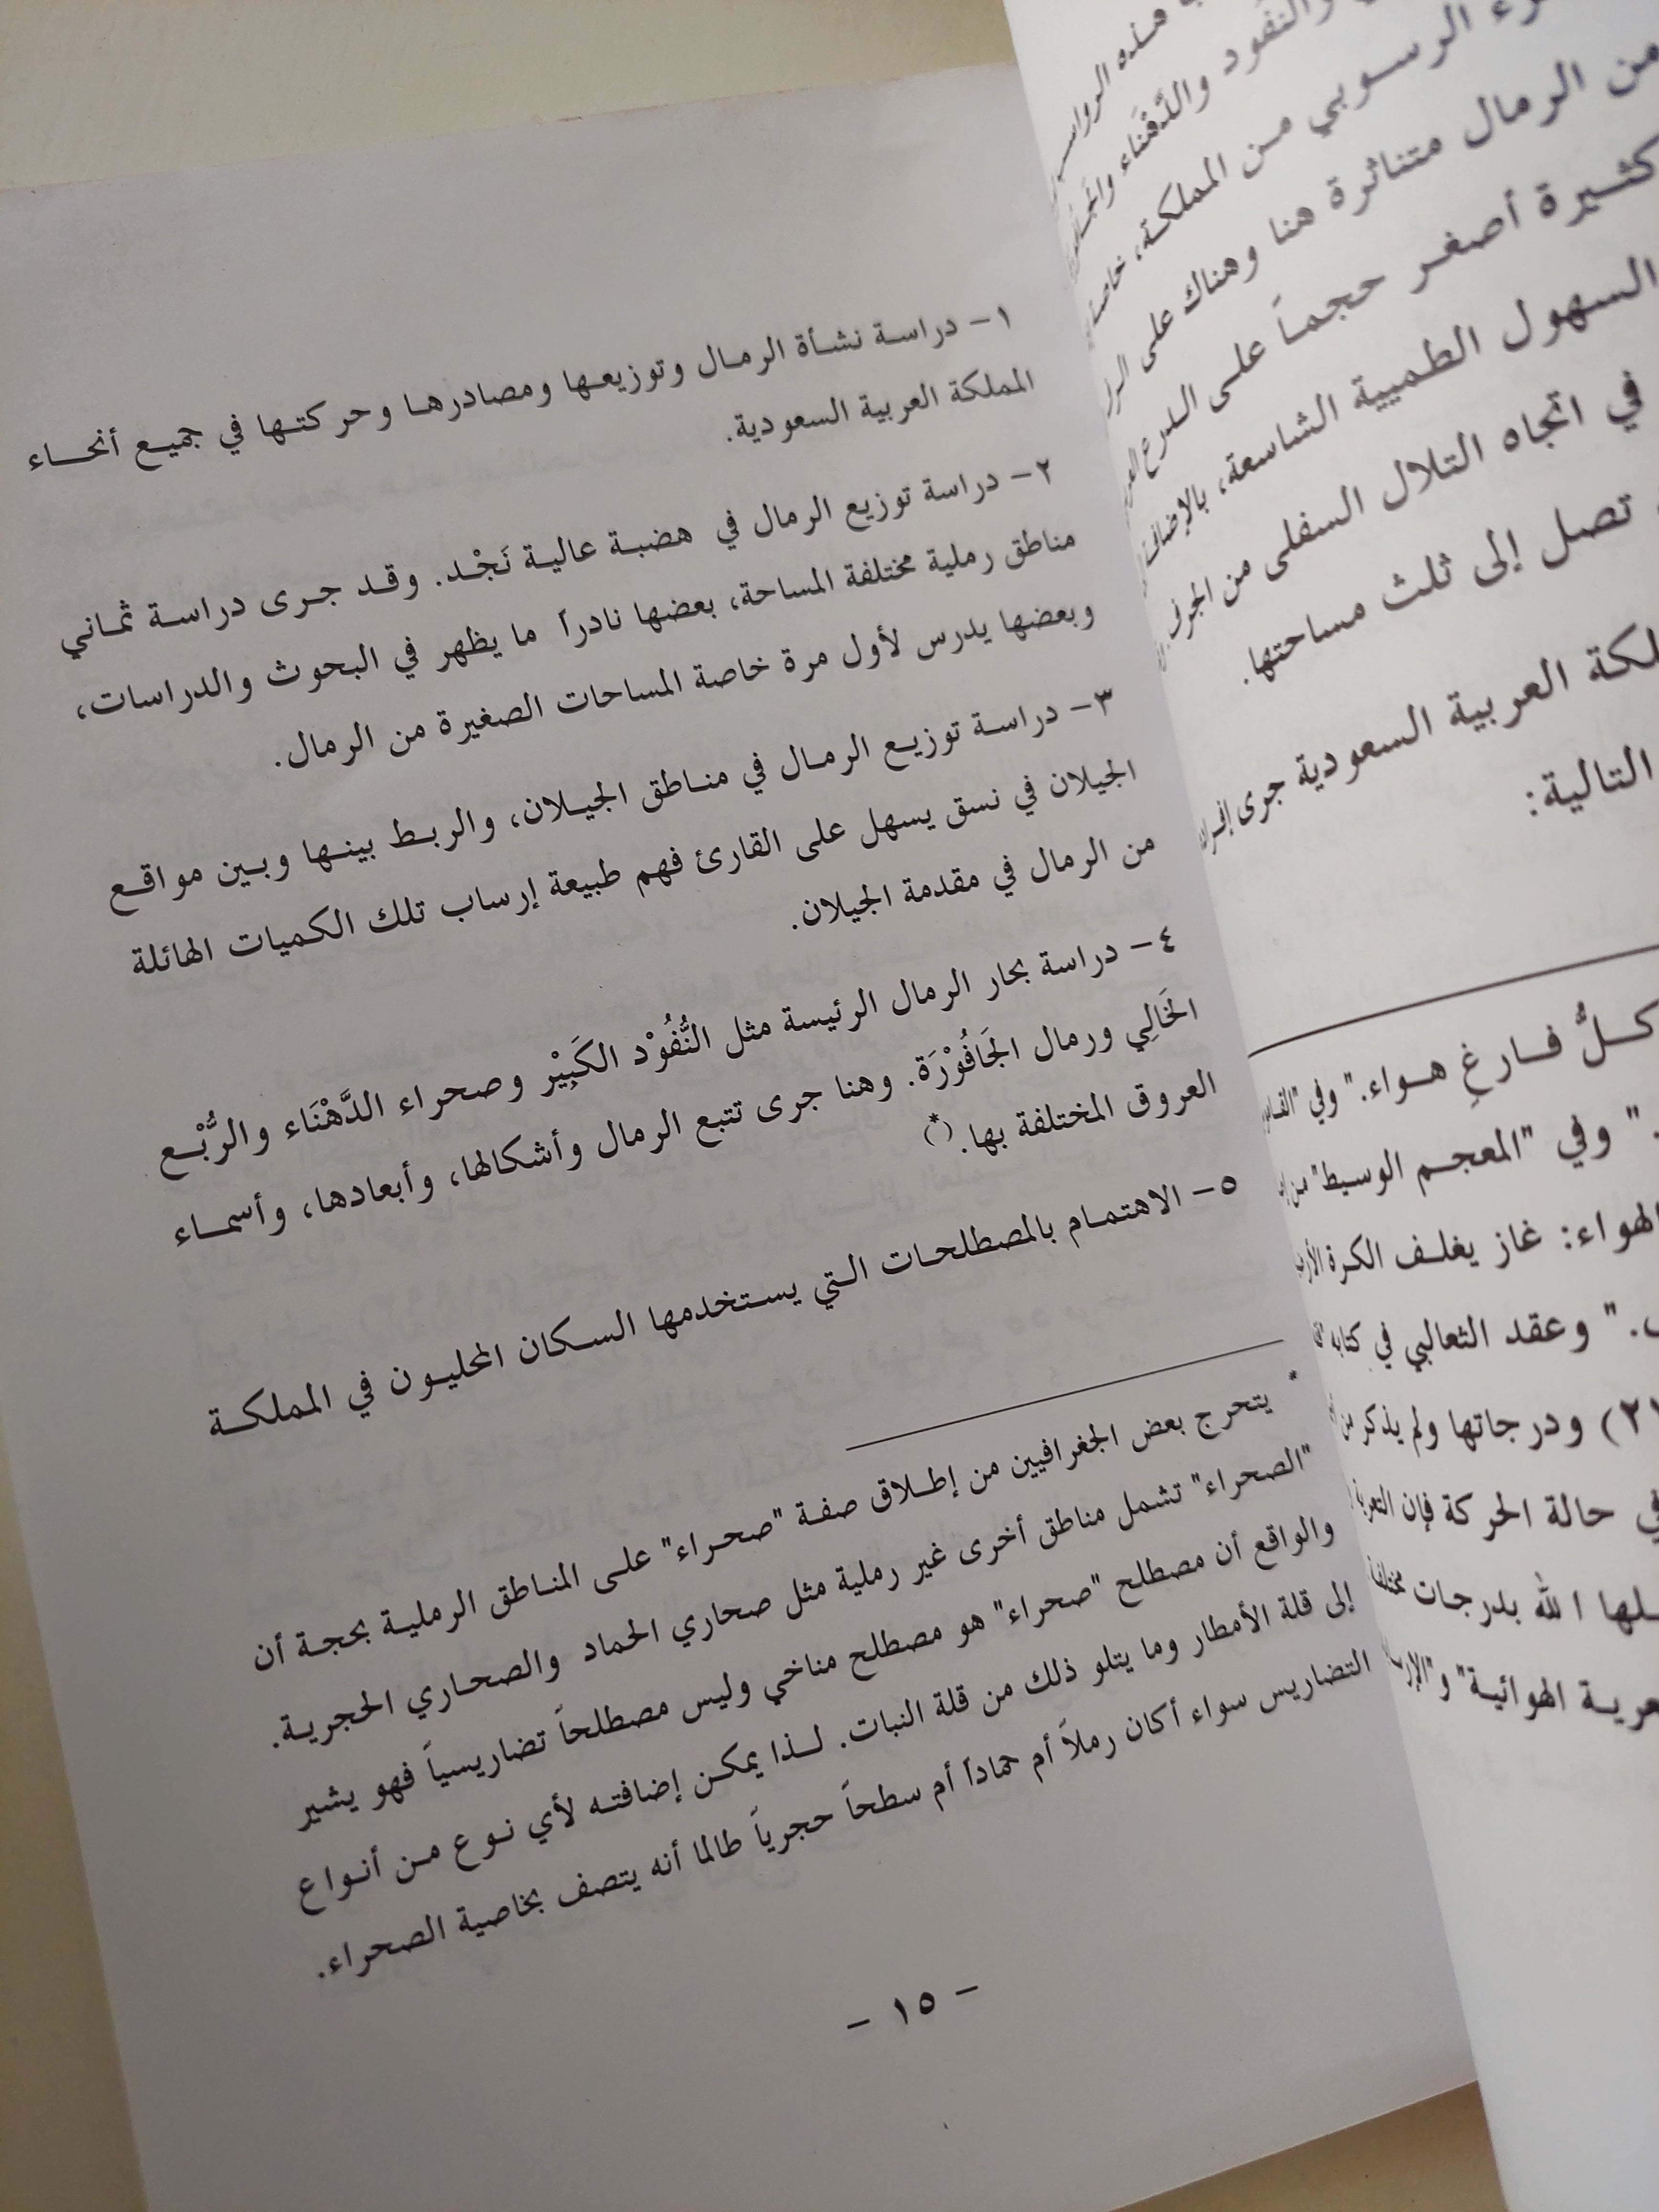 هذه
والنفود والدَّهْنَاء
الرسوبي من المملكة، خاصة
من الرمال متناثرة هنا وهناك على
كثيرة أصغر حجماً على الدرع
السهول الطميية الشاسعة، بالإضافة
في اتجاه التلال السفلى من الجرف
تصل إلى ثلث مساحتها.
العربية السعودية جرى
التالية:
كلُّ فارغٍ هواء." وفي
" وفي "المعجم الوسيط" من
الهواء: غاز يغلف الكرة
" وعقد الثعالبي في كتابه
ودرجاتها ولم يذكر من
في حالة الحركة فإن
الله بدرجات مختلفة
الهوائية"
١- دراسة نشأة الرمال وتوزيعها ومصادرها وحركتها في جميع أنحاء
المملكة العربية السعودية.
٢- دراسة توزيع الرمال في هضبة عالية نَجْد. وقد جرى دراسة ثماني
مناطق رملية مختلفة المساحة، بعضها نادراً ما يظهر في البحوث والدراسات،
وبعضها يدرس لأول مرة خاصة المساحات الصغيرة من الرمال.
٣- دراسة توزيع الرمال في مناطق الجيلان، والربط بينها وبين مواقع
الجيلان في نسق يسهل على القارئ فهم طبيعة إرساب تلك الكميات الهائلة
من الرمال في مقدمة الجيلان.
٤- دراسة بحار الرمال الرئيسة مثل النُّفُوْد الكَبِيْر وصحراء الدَّهْنَاء والرُّبْع
الخَالِي ورمال الجَافُوْرَة. وهنا جرى تتبع الرمال وأشكالها، وأبعادها، وأسماء
العروق المختلفة بها.(*)
٥- الاهتمام بالمصطلحات التي يستخدمها السكان المحليون في المملكة
* يتحرج بعض الجغرافيين من إطلاق صفة "صحراء" على المناطق الرملية بحجة أن
"الصحراء" تشمل مناطق أخرى غير رملية مثل صحاري الحماد والصحاري الحجرية.
والواقع أن مصطلح "صحراء" هو مصطلح مناخي وليس مصطلحاً تضاريسياً فهو يشير
إلى قلة الأمطار وما يتلو ذلك من قلة النبات. لذا يمكن إضافته لأي نوع من أنواع
التضاريس سواء أكان رملاً أم حماداً أم سطحاً حجرياً طالما أنه يتصف بخاصية الصحراء.
- ١٥ -